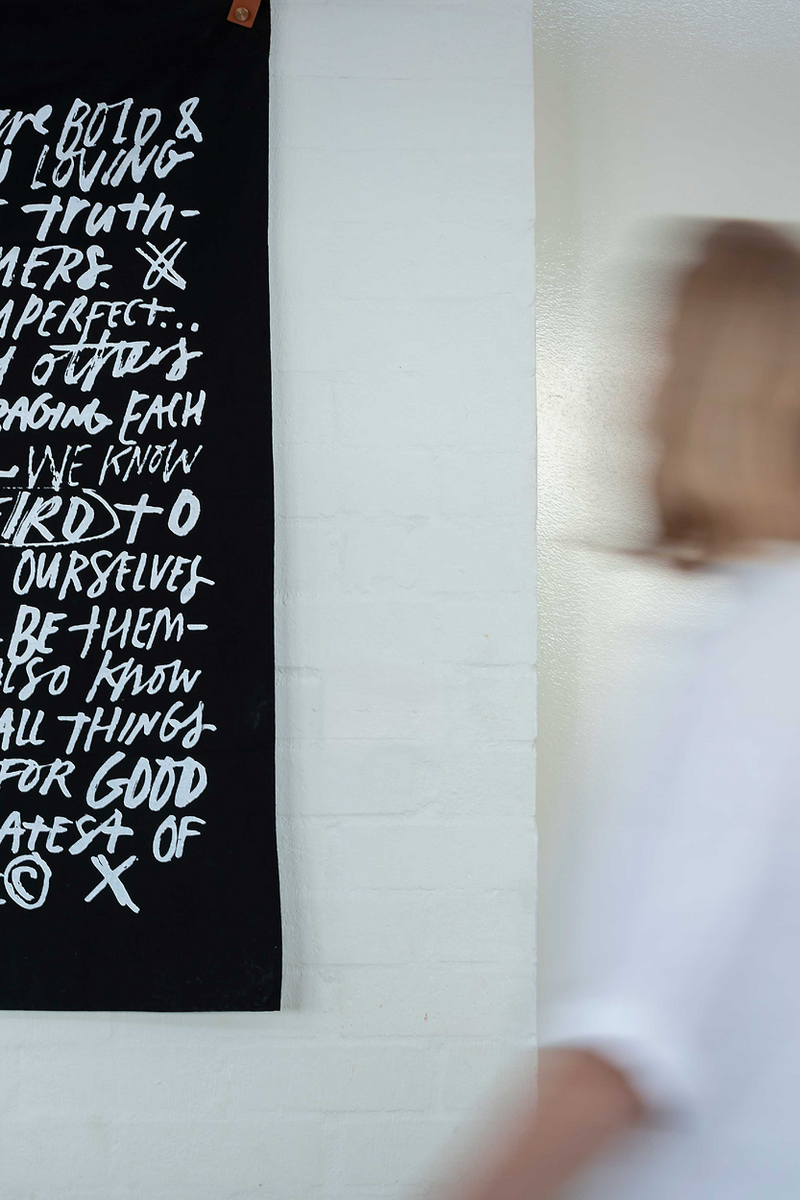 are BOLD &
LOVING
truth-
MERS. X
MPERFECT...
others
RAGING EACH
WE KNOW
EIRD to
OURSELVES
BE tHEM-
ALSO KNOW
ALL THINGS
FOR GOOD
EATEST OF
© X